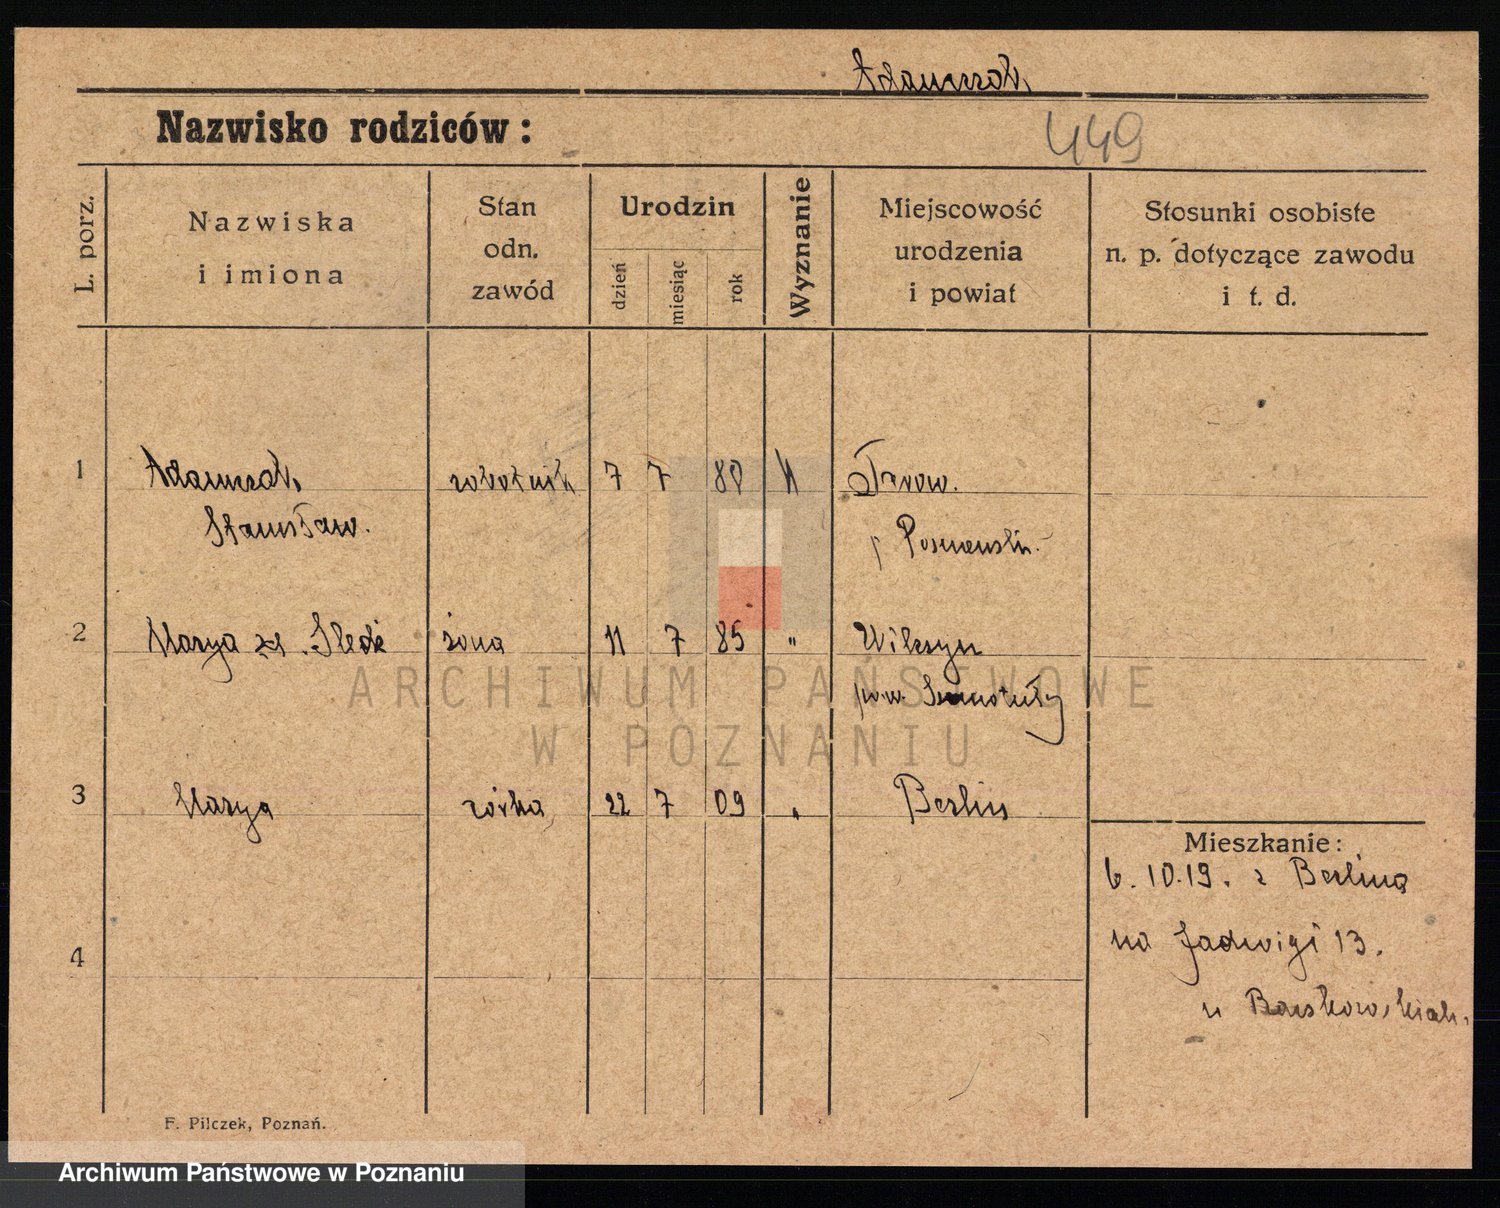 Adamczak
Nazwisko rodziców:
449
L. porz.
Nazwiska
i imiona
Stan
odn.
zawód
Urodzin
dzień
miesiąc
rok
Wyznanie
Miejscowość
urodzenia
i powiat
Stosunki osobiste
n. p. dotyczące zawodu
i t. d.
1 Adamczak robotnik 7 7 80 k
Stanisław. p Poznański.
2 Marya zd. Śledź żona 11 7 85 " Wilczyn
pow. Szamotuły
3 Marya córka 22 7 09 " Berlin
Mieszkanie:
6.10.19. z Berlina
4 na Jadwigi 13.
u
F. Pilczek, Poznań.
ARCHIWUM PAŃSTWOWE
W POZNANIU
Archiwum Państwowe w Poznaniu